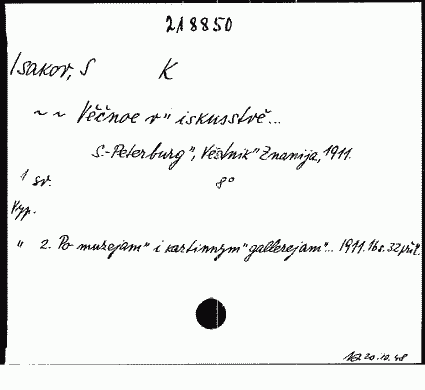 218850
Isakov, S K
~ ~ Věčnoe v" iskusstvě...
S.-Peterburg", Věstnik" Znanija, 1911.
1 sv. 8°
Vyp.
" 2. Po muzejam" i kartinnym" gallerejam"... 1911. 16 s. 32 příl.
20.10.48